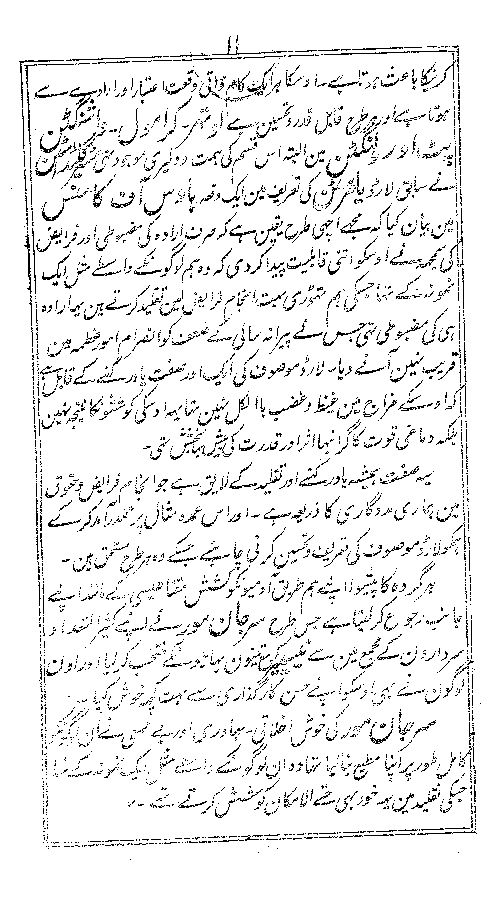 ۱۱
کرنیکا باعث ہوتا ہے ۔ اوسکا ہر ایک کام ذاتی وقعت اعتبار اور ارادے سے
ہوتا ہے اور ہر طرح قابل قدر و تحسین ہے لوتھر ۔ کرامول ۔ واشنگٹن
پٹ اور ولنگٹن مین البتہ اس قسم کی ہمت و دلیری موجود تھی
نے سابق لارڈ پامرسٹن کی تعریف مین ایک دفعہ ہاؤس آف کامنس
مین بیان کیا کہ مجھے اچھی طرح یقین ہے کہ صرف ارادہ کی مضبوطی اور فرایض
کی سمجھ نے اوسکو اتنی قابلیت پیدا کردی کہ وہ ہم لوگونکے واسطے مثل ایک
نمونہ کے تھا جسکی ہم تھوڑی بہت انجام فرایض مین تقلید کرتے ہین یہ ارادہ
ہی کی مضبوطی تھی جس نے پیرانہ سالی کے ضعف کو انصرام امور عظمہ مین
قریب نہین آنے دیا ۔ لارڈ موصوف کی ایک اور صفت یاد رکھنے کے قابل ہے
کہ اوسکے مزاج مین غیظ و غضب بالکل نہین تھا یہ اوسکی کوششونکا نتیجہ نہین
بلکہ دماغی قوت کا گرانبہا اثر اور قدرت کی بخشش تھی ۔
یہ صفت ہمیشہ یاد رکھنے اور تقلید کے لایق ہے جو انجام فرایض و حقوق
مین ہماری مددگاری کا ذریعہ ہے ۔ اور اس عمدہ مثال پر عملدرآمد کر کے
ہمکو لارڈ موصوف کی تعریف و تحسین کرنی چاہیے جسکے وہ ہر طرح مستحق ہین ۔
ہر گروہ کا پیشوا اپنے ہم طریق آدمیونکو کشش مقناطیسی کے مانند اپنے
جانب رجوع کر لیتا ہے جس طرح سرجان مور نے اپنے کثیر التعداد
سردارون کے مجمع مین سے نیپیر کے تینون بھائیونکو منتخب کر لیا اور اون
لوگون نے بھی اوسکو اپنے حسن کارگذاری سے بہت کچھ خوش کیا ۔
سرجان مور کی خوش اخلاقی ۔ بہادری اور بے نفسی نے ان لوگونکو
کامل طور پر اپنا مطیع بنا لیا تھا وہ ان لوگونکے واسطے مثل ایک نمونہ کے تھا
جسکی تقلید مین یہہ خود بھی حتے الامکان کوشش کرتے تھے ۔